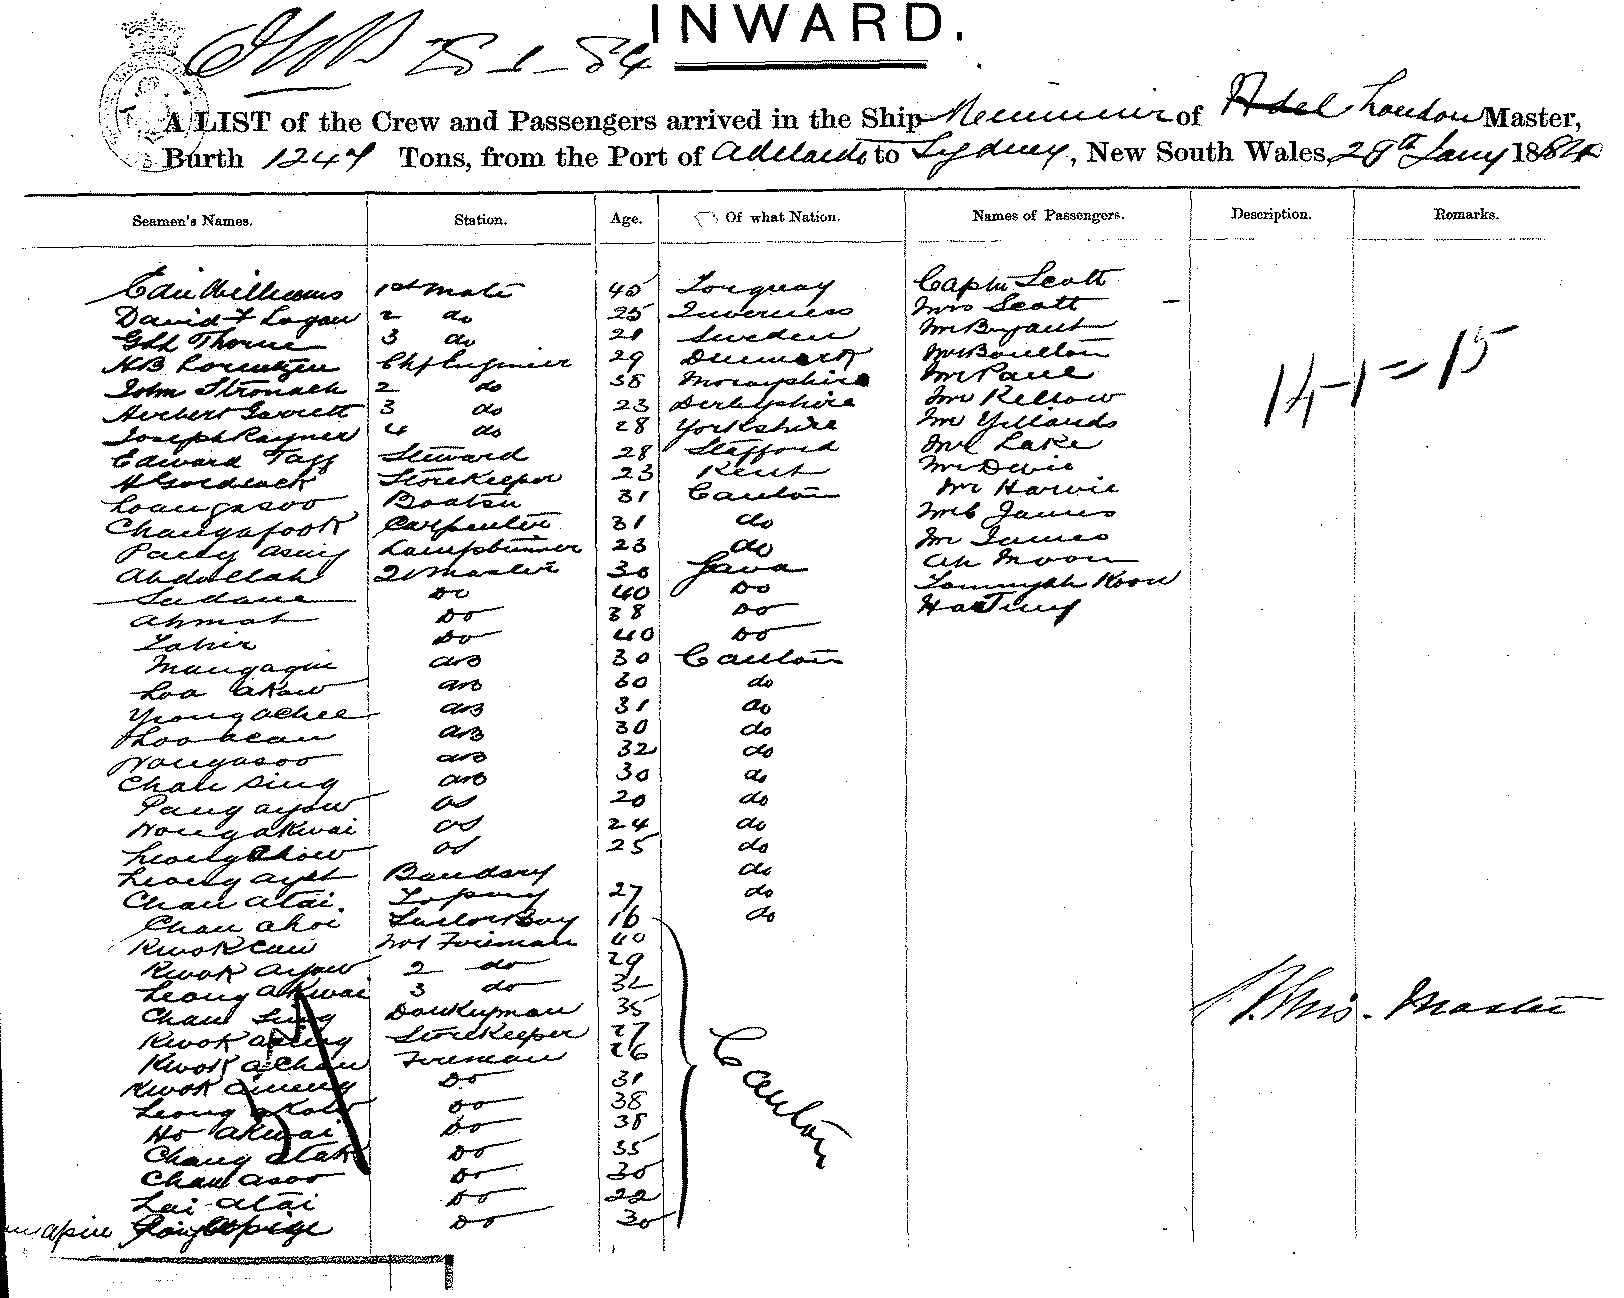 INWARD.
28-1-84
A LIST of the Crew and Passengers arrived in the Ship Menmuir of Adel London Master,
Burth 1247 Tons, from the Port of Adelaide to Sydney, New South Wales, 28th Jany 1884
Seamen's Names. Station. Age. Of what Nation. Names of Passengers. Description. Remarks.
Edw Williams 1st Mate 45 Torquay Captn Scott
David F Logan 2 do 25 Inverness Mrs Scott -
Thorne 3 do 21 Sweden Mr Bryant
HB Lorentzen Chf Engineer 29 Denmark Mr Boulton
John Stronach 2 do 38 Morayshire Mr Paul
Herbert Garrett 3 do 23 Derbyshire Mr Kellow
Joseph Rayner 4 do 28 Yorkshire Mr Yillands
Edward Tagg Steward 28 Stafford Mr Lake
H Goldlack StoreKeeper 23 Kent Mr Devie
Loongasoo Boatsn 31 Canton Mr Harvie
Changafook Carpenter 31 do Mr James
Pang asing Lamptrimmer 23 do Mr James
Abdullah Qr Master 30 Java Ah Moon
Sudana Do 40 Do Koon
Ahmat Do 38 Do
Tahir Do 40 Do
Mangaqui AB 30 Canton
Loa akaw AB 30 do
Yeong achee AB 31 do
Loo acan AB 30 do
Wongasoo AB 32 do
Chan sing AB 30 do
Pang ayow OS 20 do
Wongakwai OS 24 do
Leong chow OS 25 do
Leong ayet do
Chan atai. 27 do
Chan ahoi SailorBoy 16 do
Kwok can No1 Fireman 40
Kwok ayow 2 do 29
Leong akwai 3 do 32
Chan Sing Donkeyman 35
Kwok asing StoreKeeper 27
Kwok achan Fireman 26
Kwok ameng Do 31
Leong akow Do 38
Ho akwai Do 38
Chang atak Do 35
Chan asoo Do 30
Lai atai Do 22
Do 30
Canton
14-1=15
Master